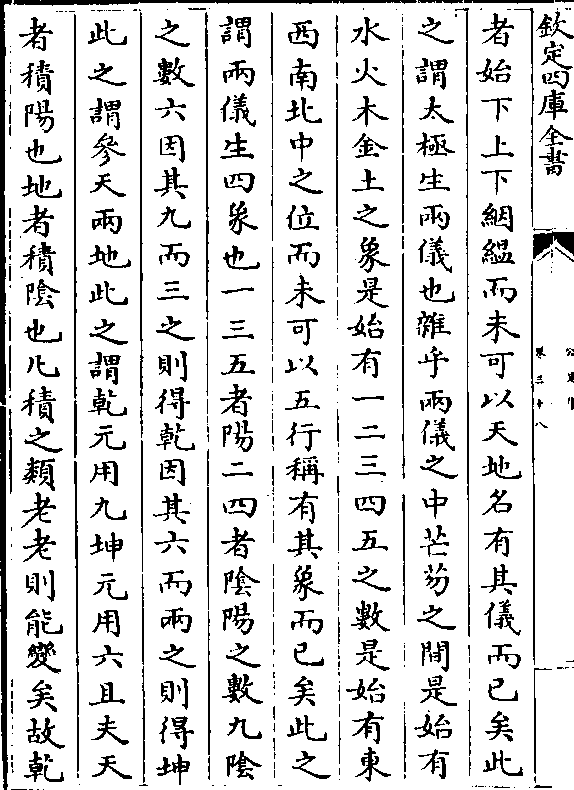 欽定四庫全書
卷三十八
者始下上下絪緼而未可以天地名有其儀而已矣此
之謂太極生兩儀也雜乎兩儀之中芒芴之間是始有
水火木金土之象是始有一二三四五之數是始有東
西南北中之位而未可以五行稱有其象而已矣此之
謂兩儀生四象也一三五者陽二四者陰陽之數九陰
之數六因其九而三之則得乾因其六而兩之則得坤
此之謂參天兩地此之謂乾元用九坤元用六且夫天
者積陽也地者積陰也凡積之類老老則能變矣故乾